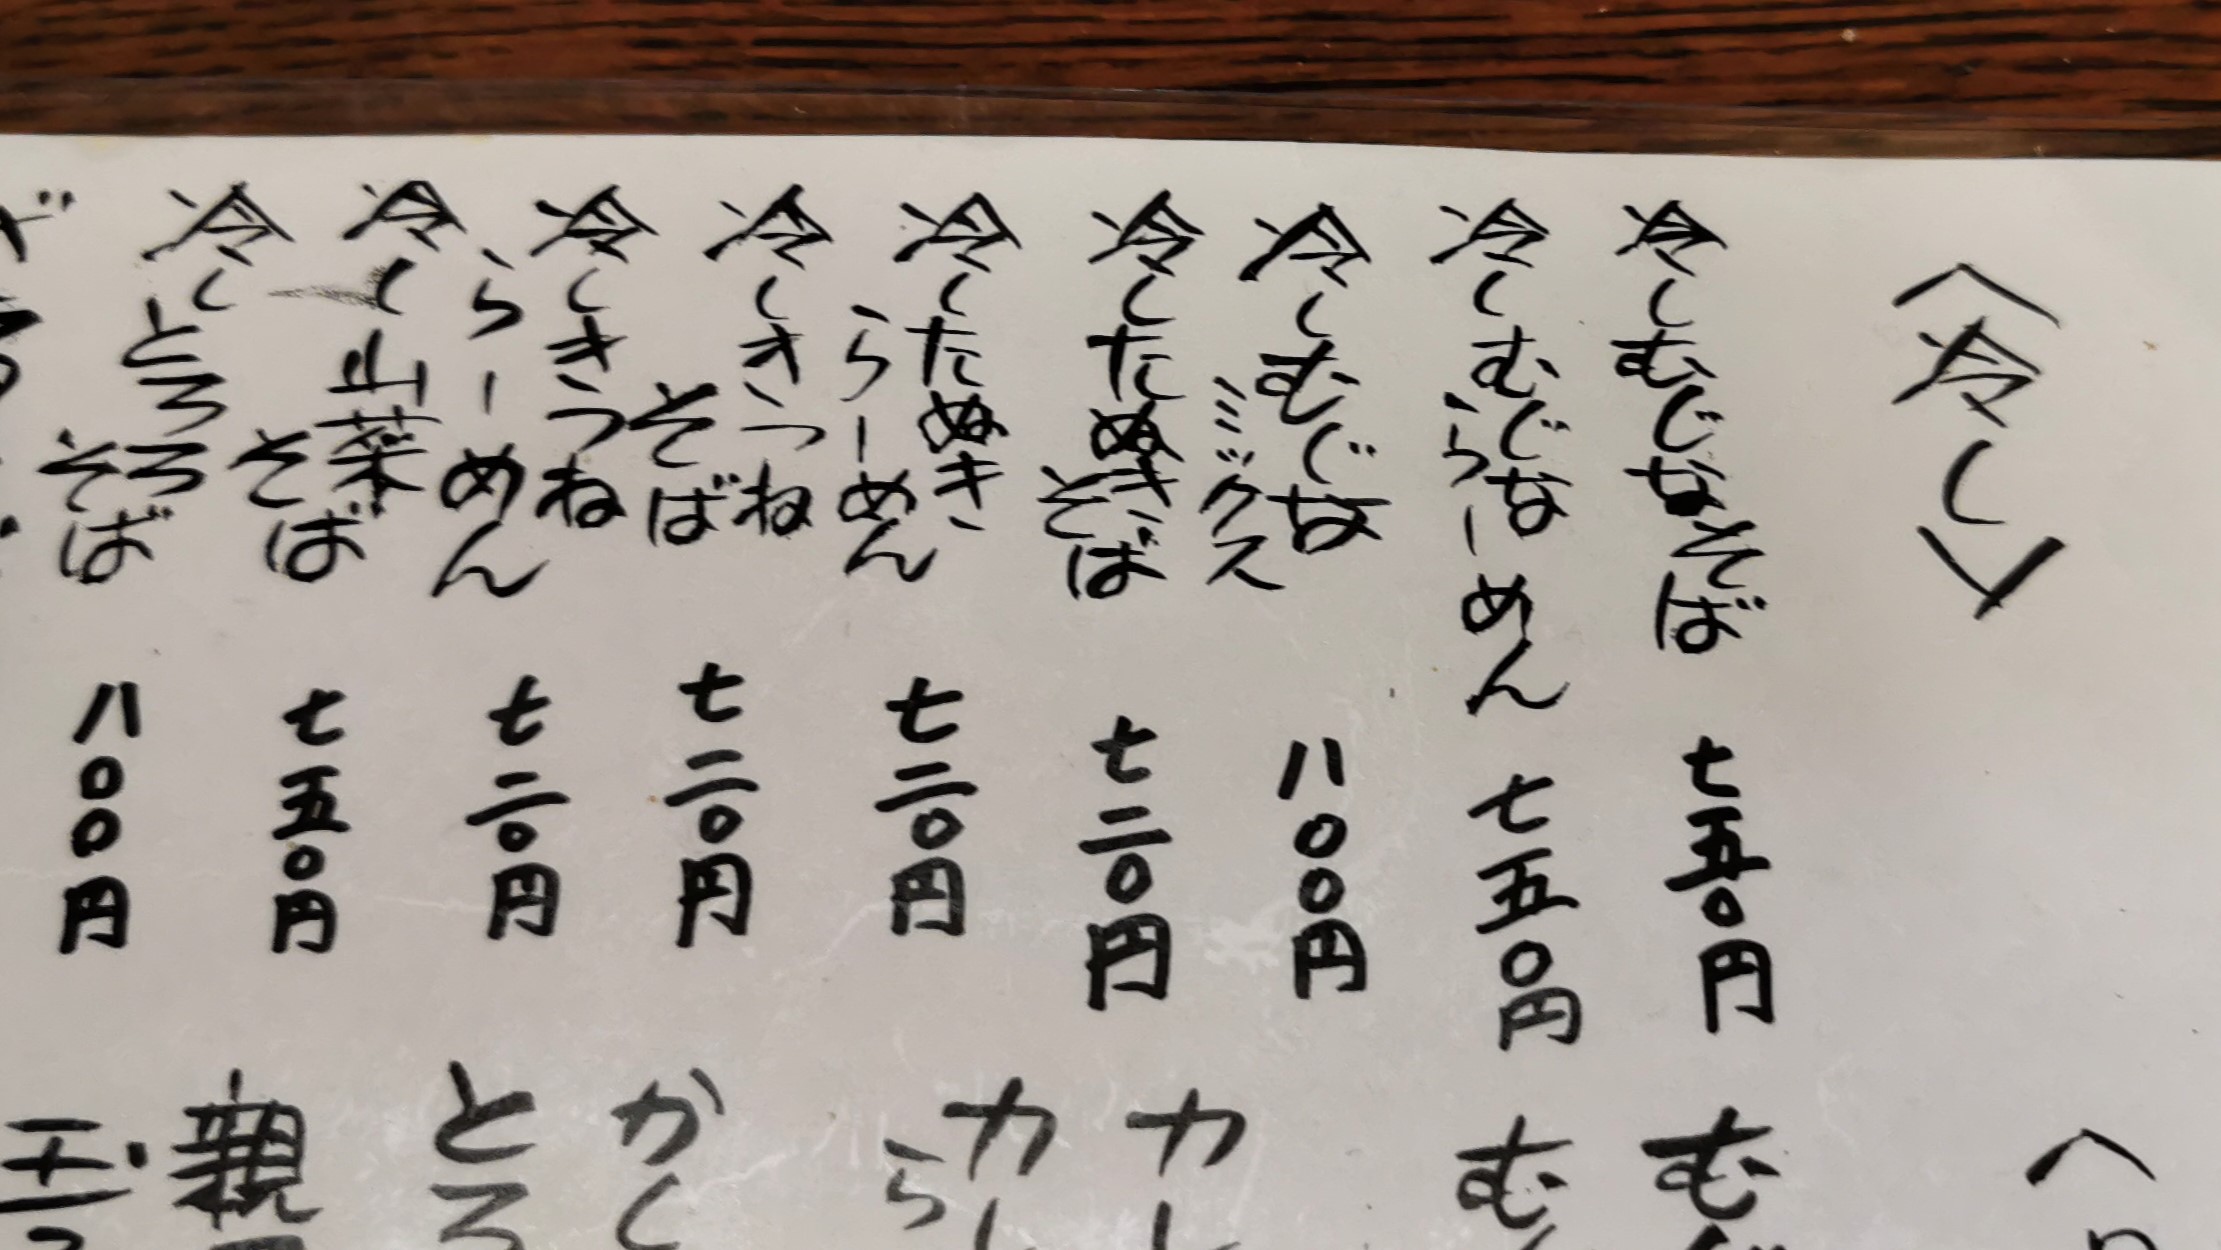 〈冷し〉
冷しむじなそば 七五〇円
冷しむじならーめん 七五〇円
冷しむじなミックス 八〇〇円
冷したぬきそば 七二〇円
冷したぬきらーめん 七二〇円
冷しきつねそば 七二〇円
冷しきつねらーめん 七二〇円
冷し山菜そば 七五〇円
冷しとろろそば 八〇〇円
む
む
カ
カ
ら
かく
とろ
親
玉